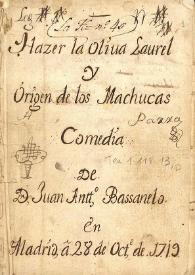 Leg
La Ft.ª nº 40
Hazer la Oliua Laurel
y
Origen de los Machucas
Parra
Comedia
Tea 1-118-13,
De
D. Juan Antt.º Bassanelo.
en
Madrid, â 28 de Oct.e de 1713